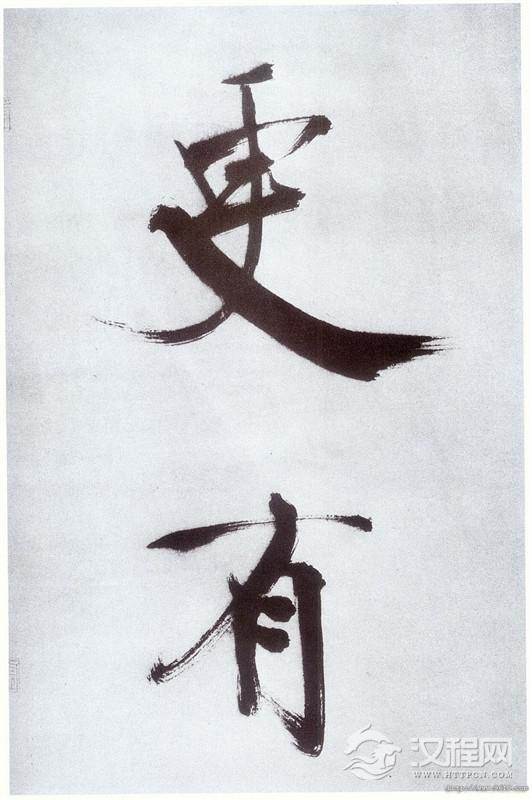 更
有
汉程网
WWW.HTTPCN.COM